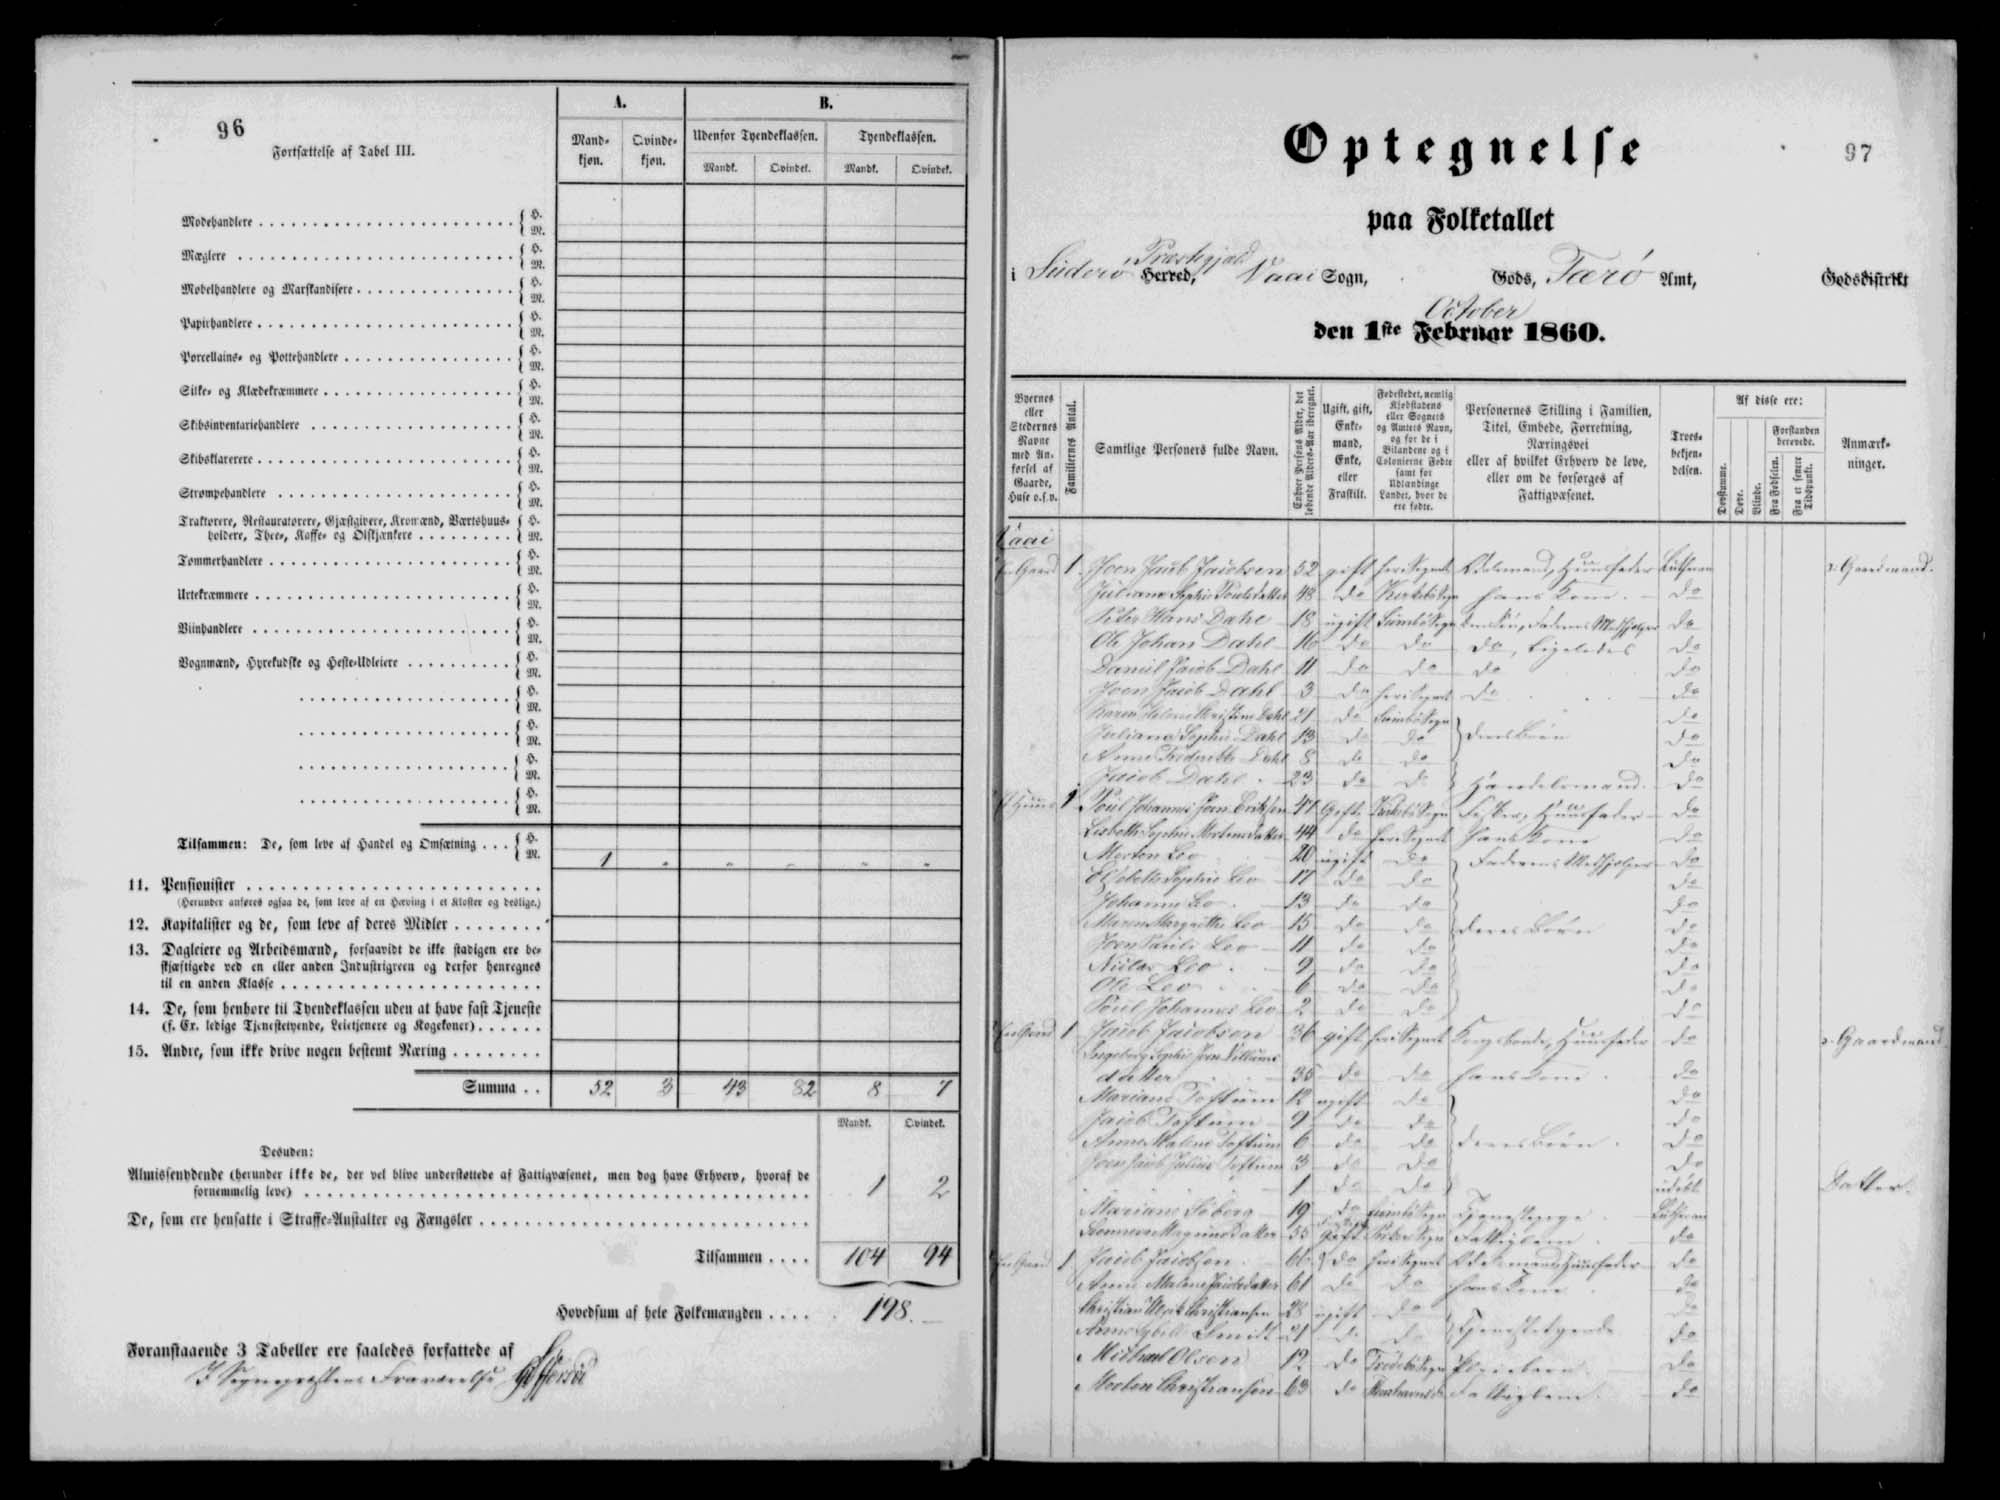 96
Fortsættelse af Tabel III.
A.
B.
Mand-
kjøn.
Qvinde-
kjøn.
Udenfor Tyendeklassen.
Tyendeklassen.
Mandk.
Qvindek.
Mandk.
Qvindek.
Modehandlere { H. M.
Mæglere { H. M.
Møbelhandlere og Marskandisere { H. M.
Papirhandlere { H. M.
Porcellains- og Pottehandlere { H. M.
Silke- og Klædekræmmere { H. M.
Skibsinventariehandlere { H. M.
Skibsklarerere { H. M.
Strømpehandlere { H. M.
Traktører, Restauratører, Gjæstgivere, Kromænd, Værtshuus-
holdere, Thee-, Kaffe- og Ølskjænkere { H. M.
Tømmerhandlere { H. M.
Urtekræmmere { H. M.
Viinhandlere { H. M.
Vognmænd, Hyrekudske og Heste-Udleiere { H. M.
{ H. M.
{ H. M.
{ H. M.
{ H. M.
Tilsammen: De, som leve af Handel og Omsætning . . . { H. M. 1 " " " " "
11. Pensionister
(Herunder anføres ogsaa de, som leve af en Hæving i et Kloster og deslige.)
12. Kapitalister og de, som leve af deres Midler
13. Dagleiere og Arbeidsmænd, forsaavidt de ikke stadigen ere be-
skjæftigede ved en eller anden Industrigreen og derfor henregnes
til en anden Klasse
14. De, som henhøre til Tyendeklassen uden at have fast Tjeneste
(f. Ex. ledige Tjenestetyende, Leietjenere og Kogekoner)
15. Andre, som ikke drive nogen bestemt Næring
Summa . . 52 3 43 82 8 7
Mandk. Qvindek.
Desuden:
Almissenydende (herunder ikke de, der vel blive understøttede af Fattigvæsenet, men dog have Erhverv, hvoraf de
fornemmelig leve) 1 2
De, som ere hensatte i Straffe-Anstalter og Fængsler
Tilsammen . . . . 104 94
Hovedsum af hele Folkemængden . . . . 198.
Foranstaaende 3 Tabeller ere saaledes forfattede af
I Sognepræstens Fraværelse
Optegnelse
97
paa Folketallet
i Suderø Præstegjæld Herred, Vaai Sogn, Gods, Færø Amt, Godsdistrikt
October
den 1ste Februar 1860.
Byernes
eller
Stedernes
Navne
med An-
førsel af
Gaarde,
Huse o.s.v.
Familiernes Antal.
Samtlige Personers fulde Navn.
Enhver Persons Alder, det
løbende Alders-Aar iberegnet.
Ugift, gift,
Enke-
mand,
Enke,
eller
Fraskilt.
Fødestedet, nemlig
Kjøbstadens
eller Sognets
og Amtets Navn,
og for de i
Bilandene og i
Colonierne Fødte
samt for
Udlændinge
Landet, hvor de
ere fødte.
Personernes Stilling i Familien,
Titel, Embede, Forretning,
Næringsvei
eller af hvilket Erhverv de leve,
eller om de forsørges af
Fattigvæsenet.
Troes-
bekjen-
delsen.
Af disse ere:
Døvstumme.
Døve.
Blinde.
Forstanden
berøvede.
Fra Fødselen.
Fra et senere
Tidspunkt.
Anmærk-
ninger.
Vaai
En Gaard 1 Joen Jacob Jacobsen 52 gift her i Sognet Odelsmand, Huusfader Luthersk Gaardmand.
Juliane Sophie Poulsdatter 48 do hans Kone do
Peter Hans Dahl 18 ugift Sumbø Sogn Faderens Medhjelper do
Ole Johan Dahl 16 do do do, Ligeledes do
Daniel Jacob Dahl 11 do do do do
Joen Jacob Dahl 3 do her i Sognet do do
Dahl 21 do Sumbø Sogn do
Juliane Sophie Dahl 13 do do } deres Børn do
Anne Frederikke Dahl 8 do do do
Jacob Dahl 23 do do Handelsmand do
Et Huus 1 Poul Johannes Joen Eriksen 47 Gift Fisker, Huusfader do
Lisbeth Sophie Mortensdatter 44 do her i Sognet hans Kone do
Morten Leo 20 ugift do Faderens Medhjelper do
Elsebeth Sophie Leo 17 do do do
Johanne Leo 13 do do do
Maren Margrethe Leo 15 do do deres Børn do
Joen Leo 11 do do do
Leo 9 do do do
Ole Leo 6 do do do
Poul Johannes Leo 2 do do do
En Gaard 1 Jacob Jacobsen 36 gift her i Sognet Kongsbonde, Huusfader do Gaardmand
Ingeborg Sophie Joen
datter 35 do do hans Kone do
Mariane Toftum 12 ugift do do
Jacob Toftum 9 do do do
Anne Malene Toftum 6 do do deres Børn do
Joen Jacob Julius Toftum 3 do do do
1 do do udøbt Datter.
Mariane 19 do Sumbø Sogn Tjenestepige Luthersk
55 Gift Fattiglem do
En Gaard 1 Jacob Jacobsen do her i Sognet Odelsmand Huusfader do
Anne Malene Jacobsdatter 61 do do hans Kone do
Christiansen 28 ugift do } Tjenestetyende do
Anne Smidt 21 do do do
Michael Olsen 12 do Pleiebarn do
Morten Christiansen 63 do Fattiglem do